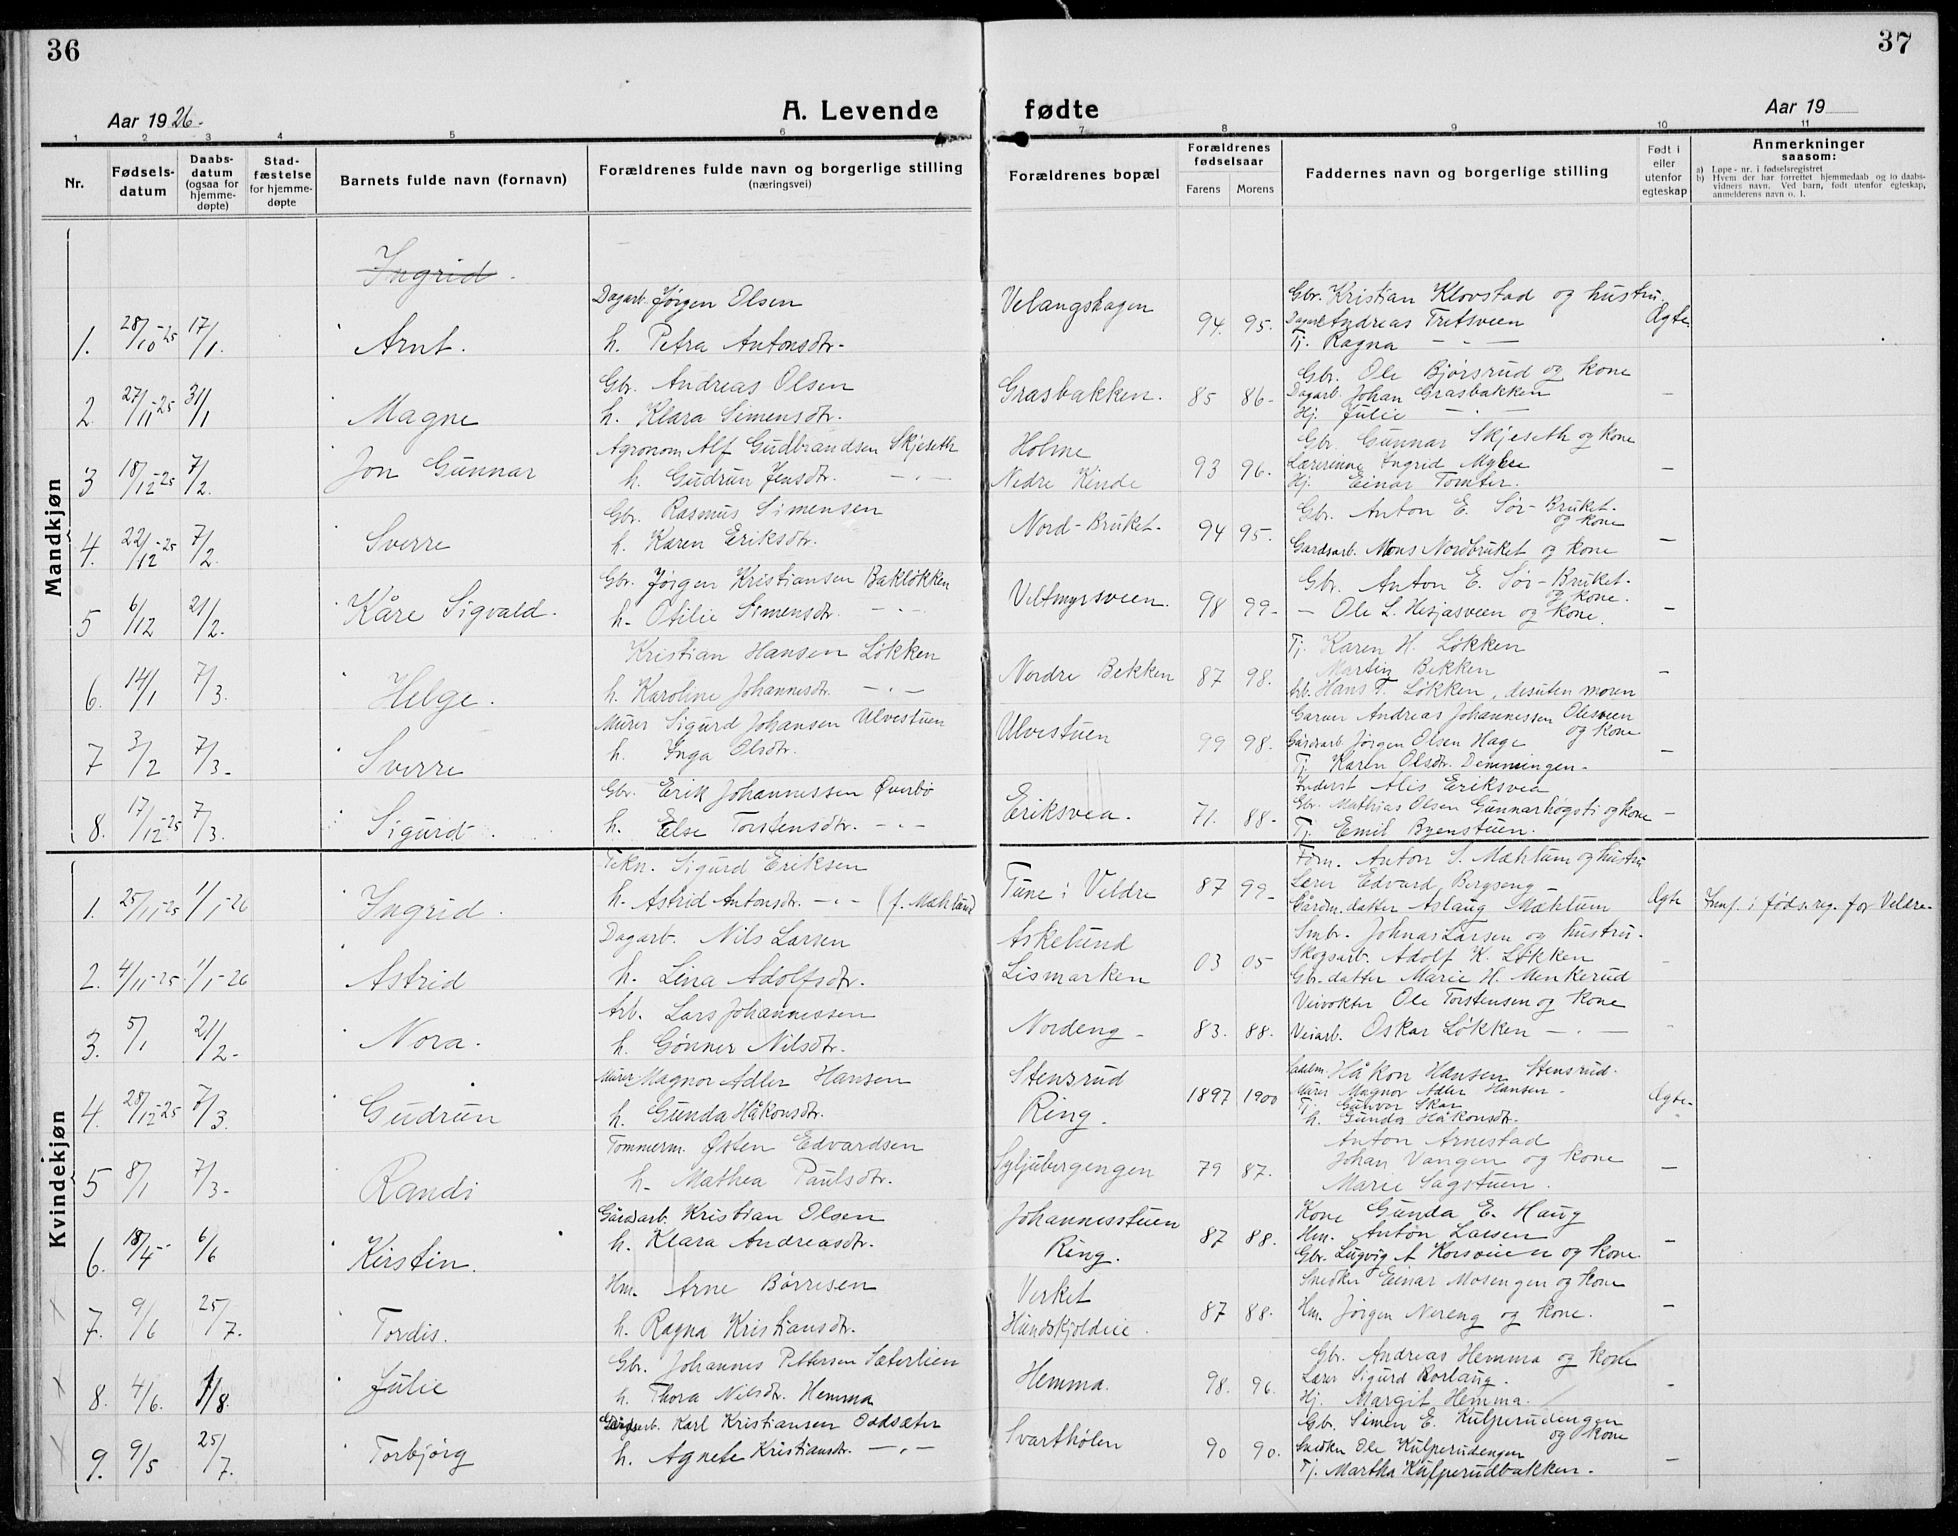 36
37
Aar 1926.
A. Levende fødte
Aar 19
1 2 3 4 5 6 7 8 9 10 11
Nr.
Fødsels-
datum
Daabs-
datum
(ogsaa for
hjemme-
døpte)
Stad-
fæstelse
for hjemme-
døpte
Barnets fulde navn (fornavn)
Forældrenes fulde navn og borgerlige stilling
(næringsvei)
Forældrenes bopæl
Forældrenes
fødselsaar
Farens Morens
Faddernes navn og borgerlige stilling
Født i
eller
utenfor
egteskap
Anmerkninger
saasom:
a) Løpe-nr. i fødselsregistret
b) Hvem der har forrettet hjemmedaab og to daabs-
vidners navn. Ved barn, født utenfor egteskap,
anmelderens navn o. l.
Mandkjøn
Ingrid
1. 28/10-25 17/1. Arnt.
Dagarb. Jørgen Olsen
h. Petra Antonsdtr.
Velangshagen 94. 95.
Gbr. Kristian Klovstad og hustru.
Dagarb Andreas Tretsveen
Tj. Ragna — " —
Ægte
2. 27/11-25 31/1 Magne
Gbr. Andreas Olsen
h. Klara Simensdtr.
Grasbakken. 85 86-
Gbr. Ole Bjørsrud og kone
Dagarb. Johan Grasbakken
Hj. Julie — " —
—
3 18/12-25 7/2. Jon Gunnar
Agronom Alf Gudbrandsen Skjeseth
h. Gudrun Jensdtr. — " —
Holme
Nedre Kinde 93 96.
Gbr. Gunnar Skjeseth og kone
Lærerinne Ingrid Myhre
Hj. Einar Tomter.
—
4. 22/12-25 7/2. Sverre
Gbr. Rasmus Simensen
h. Karen Eriksdtr.
Nord-Bruket. 94 95.
Gbr. Anton E. Sør-Bruket.
og kone
Gardsarb. Mons Nordbruket og kone
—
5 6/12 21/2. Kåre Sigvald.
Gbr. Jørgen Kristiansen Bakløkken
h. Otilie Simensdtr. — " —
Veltmyrsveen. 98 99-
Gbr. Anton E. Sør-Bruket.
og kone.
— Ole L. Hesjasveen og kone.
—
6. 14/1 7/3. Helge.
Kristian Hansen Løkken
h. Karoline Johannesdtr. — " —
Nordre Bekken 87 98.
Tj. Karen H. Løkken
Martin Bekken
Arb. Hans T. Løkken, desuten moren
—
7 3/2 7/3. Sverre
Murer Sigurd Johansen Ulvestuen
h. Inga Olsdtr.
Ulvestuen 99 98.
Garver Andreas Johannessen Olesveen
og kone
Gårdsarb. Jørgen Olsen Hage
Tj. Karen Olsdtr. Demningen.
—
8. 17/12-25 7/3. Sigurd.
Gbr. Erik Johannessen Øverbø
h. Else Torstensdtr. — " —
Eriksvea. 71. 88-
Inderst Alis Eriksvea
Gbr. Mathias Olsen Gunnarhøgsti og kone
Tj. Emil Byenstuen.
—
Kvindekjøn
1. 25/11-25 1/1-26 Ingrid.
Tekn. Sigurd Eriksen
h. Astrid Antonsdtr. — " — (f. Mæhlum)
Tune i Veldre 87 99-
Form. Anton S. Mæhlum og hustru
Lærer Edvard Bergseng —
Gårdm.datter Aslaug Mæhlum
Ægte
Innf. i føds.reg. for Veldre.
2. 4/11-25 1/1-26 Astrid
Dagarb. Nils Larsen
h. Lina Adolfsdtr.
Askelund
Lismarken 03 05
Smbr. Johnas Larsen og hustru.
Skogsarb. Adolf K. Løkken
Gbr.datter Marie H. Menkerud
3. 5/1 21/2. Nora.
Arb. Lars Johannessen
h. Gønner Nilsdtr.
Nordeng 83. 88.
Veivokter Ole Torstensen og kone
Veiarb. Oskar Løkken — " —
4. 28/12-25 7/3. Gudrun
Murer Magnor Adler Hansen
h. Gunda Håkonsdtr.
Stensrud
Ring. 1897 1900
Håkon Hansen Stensrud.
Murer Magnor Adler Hansen.
Tj. Gunvor Skar
h. Gunda Håkonsdtr.
Ægte-
5 8/1 7/3. Randi
Tommerm. Østen Edvardsen
h. Mathea Paulsdtr.
Syljubergengen 79 87.
Anton Arnestad
Johan Vangen og kone
Marie Sagstuen.
—
6. 18/4 6/6 Kirstin.
Gårdsarb. Kristian Olsen
h. Klara Andreasdtr.
Johannesstuen
Ring. 87 88.
Kone Gunda E. Haug
Hm. Anton Larsen
Gbr. Lugvig A Korsveien og kone.
—
7. 9/6 25/7. Tordis.
Hm. Arne Børresen
h. Ragna Kristiansdtr.
Verket
Hundskjoldeie. 87 88.
Snedker Einar Mosengen og kone
Hm. Jørgen Nereng og kone.
—
8. 4/6. 1/8. Julie
Gbr. Johannes Pettersen Sæterlien
h. Thora Nilsdtr. Hemma
Hemma. 98. 96.
Gbr. Andreas Hemma og kone
Lærer Sigurd Borlaug.
Hj. Margit Hemma.
9. 9/5 25/7. Torbjørg
Gårdsarb. Karl Kristiansen Oddsæter
h. Agnete Kristiansdtr. — " —
Svarthølen 90 90.
Gbr. Simen E. Kulperudengen
og kone
Snedker Ole Kulperudengen
Tj. Martha Kulperudbakken.
—